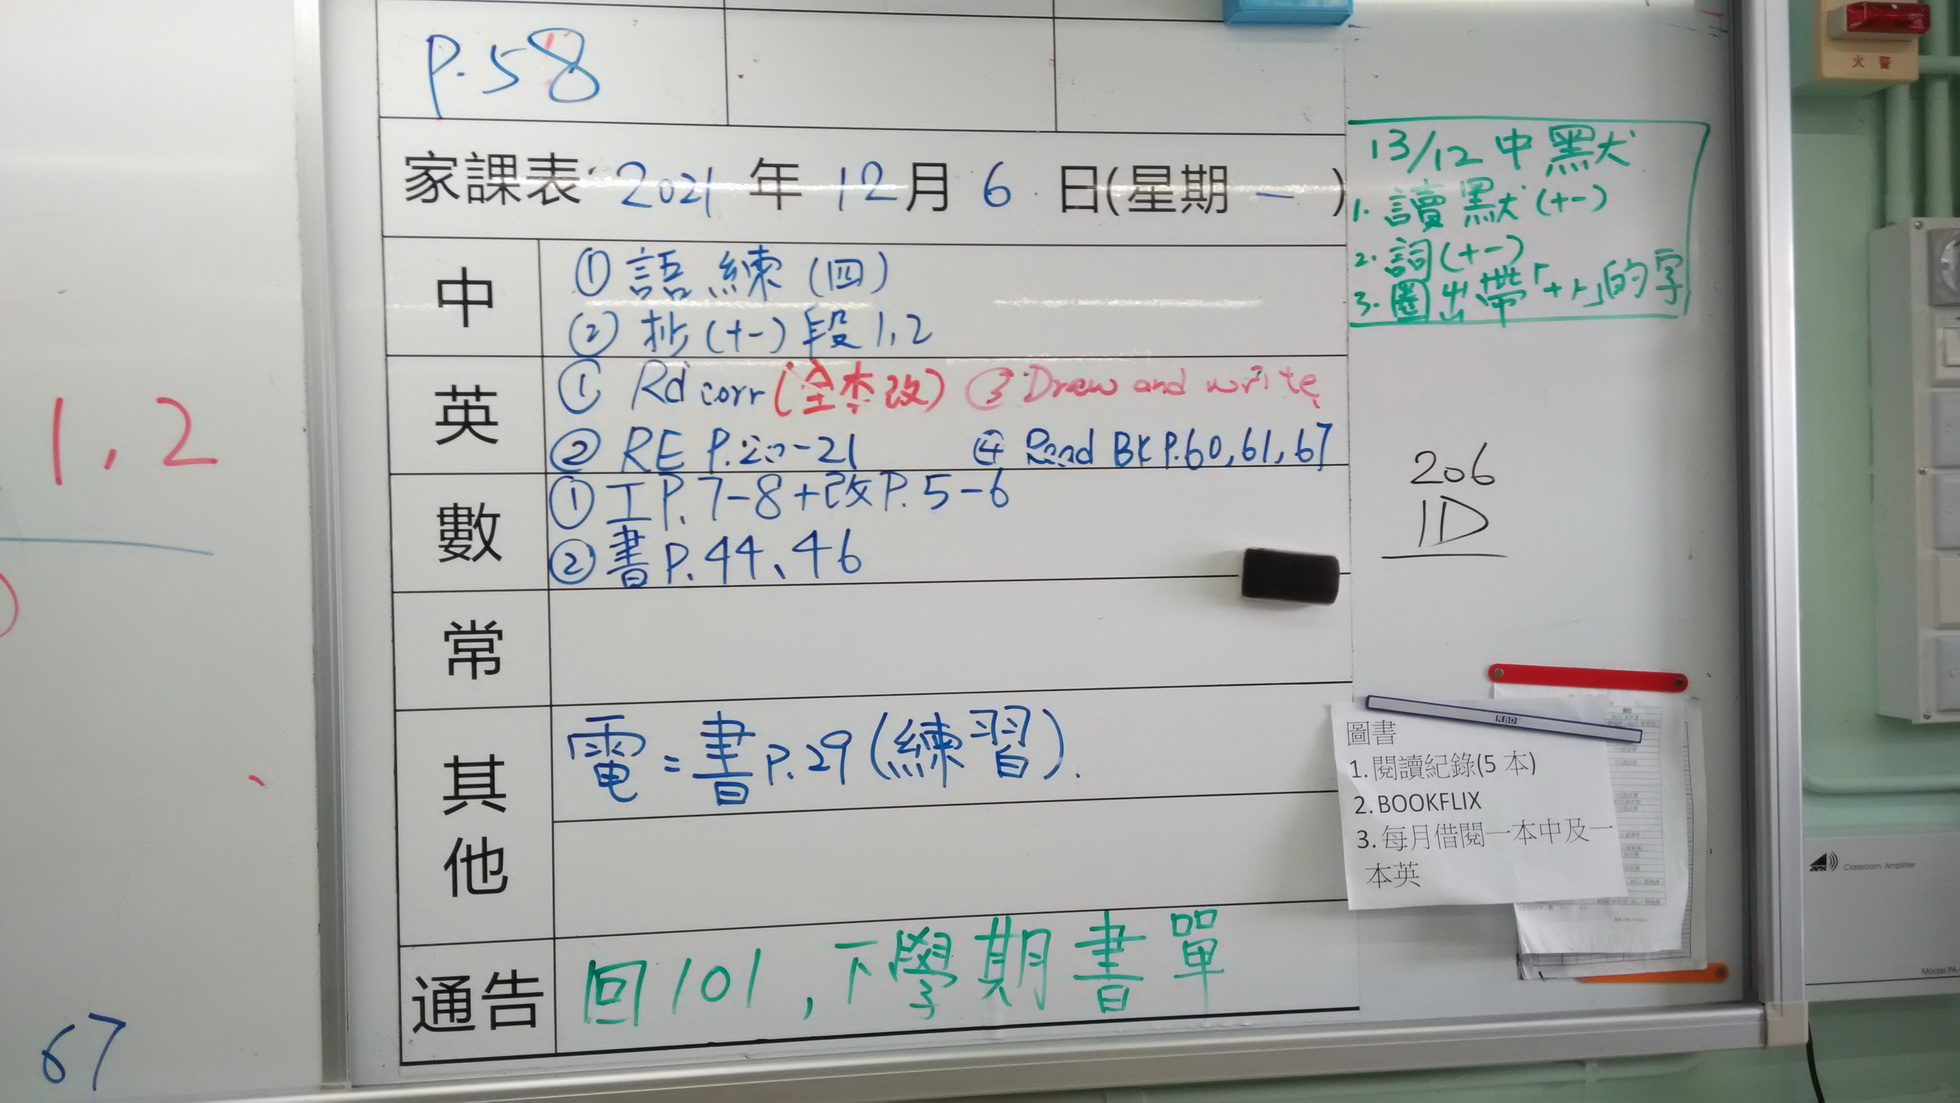 P.58
家課表: 2021 年 12 月 6 日(星期 一 )
中
① 語練(四)
② 抄(十一)段1,2
英
① Rd corr(全本改) ③ Draw and write
② RE P.20-21 ④ Read BK P.60,61,67
數
① 工P.7-8+改P.5-6
② 書P.44、46
常
其他
電=書P.29(練習).
通告
回101,下學期書單
13/12 中默
1. 讀默(十一)
2. 詞(十一)
3. 圈出帶「」的字
206
1D
圖書
1. 閱讀紀錄(5 本)
2. BOOKFLIX
3. 每月借閱一本中及一
本英
1,2
67
火警
RBD
Classroom Amplifier
Model:PA-